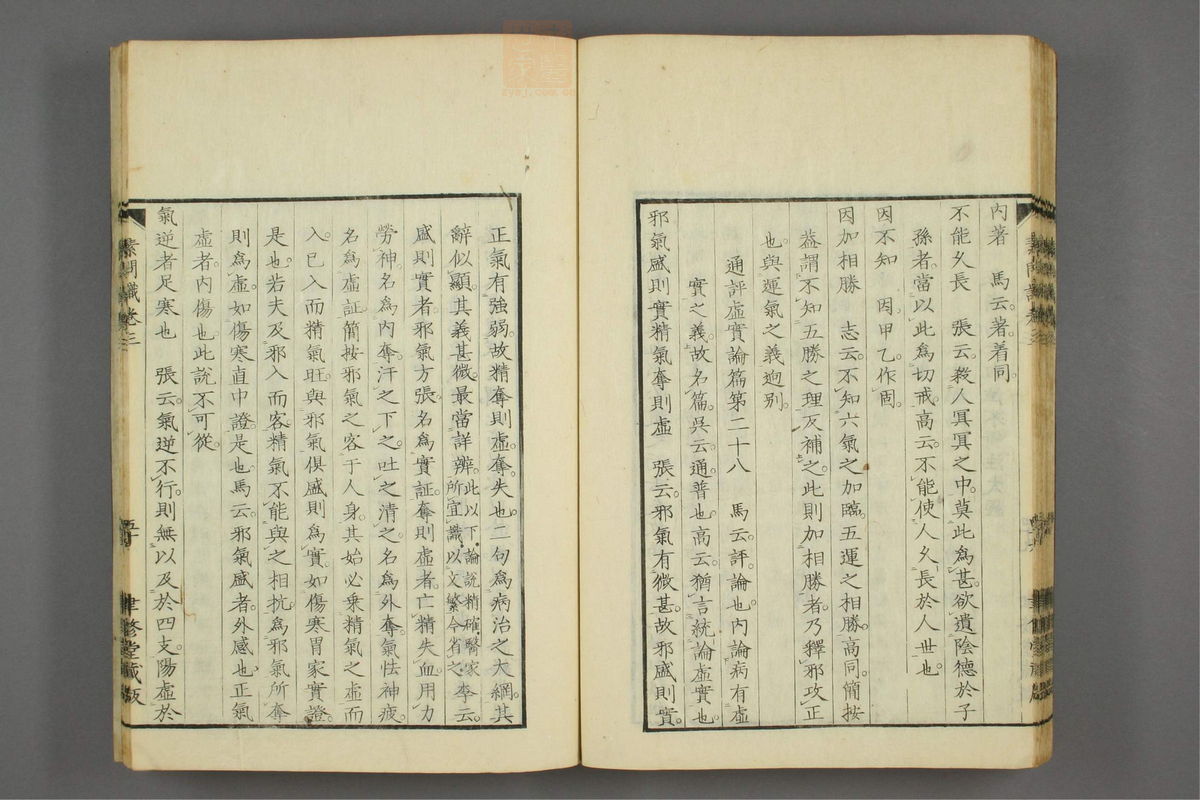 內著　馬云。著。着同。
不能久長　張云。殺人冥冥之中。莫此爲甚。欲遺陰德於子
孫者。當以此爲切戒。高云。不能使人久長於人世也。
因不知　因。甲乙。作固。
因加相勝　志云。不知六氣之加臨。五運之相勝。高同。簡按
益謂不知五勝之理及補之。此則加相勝者。乃釋邪攻正
也。與運氣之義逈別。
通評虛實論篇第二十八　馬云。評。論也。內論病有虛
實之義。故名篇。吳云。通。普也。高云。猶言統論虛實也。
邪氣盛則實精氣奪則虛　張云。邪氣有微甚。故邪盛則實。
正氣有強弱。故精奪則虛。奪。失也。二句爲病治之大綱。其
辭似顯。其義甚微。最當詳辨。此以下論說精確醫家所宜識以文繁今省之李云。
盛則實者。邪氣方張。名爲實証。奪則虛者。亡精失血。用力
勞神。名爲內奪。汗之下之。吐之清之。名爲外奪。氣怯神疲。
名爲虛証。簡按邪氣之客于人身。其始必乘精氣之虛而
入。已入而精氣旺。與邪氣俱盛則爲實。如傷寒胃家實證。
是也。若夫及邪入而客。精氣不能與之相抗。爲邪氣所奪
則爲虛。如傷寒直中證。是也。馬云。邪氣盛者。外感也。正氣
虛者。內傷也。此說不可從。
氣逆者足寒也　張云。氣逆不行。則無以及於四支。陽虛於
素問識卷三
五十
聿修堂藏版